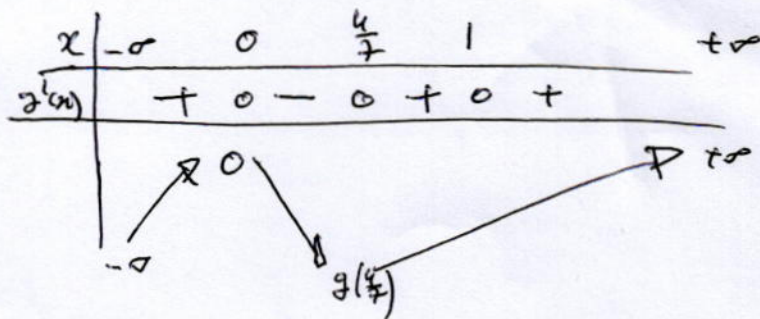 x | -∞ 0 4/7 1 +∞
g'(x) | + 0 - 0 + 0 +
0 +∞
-∞ g(4/7)